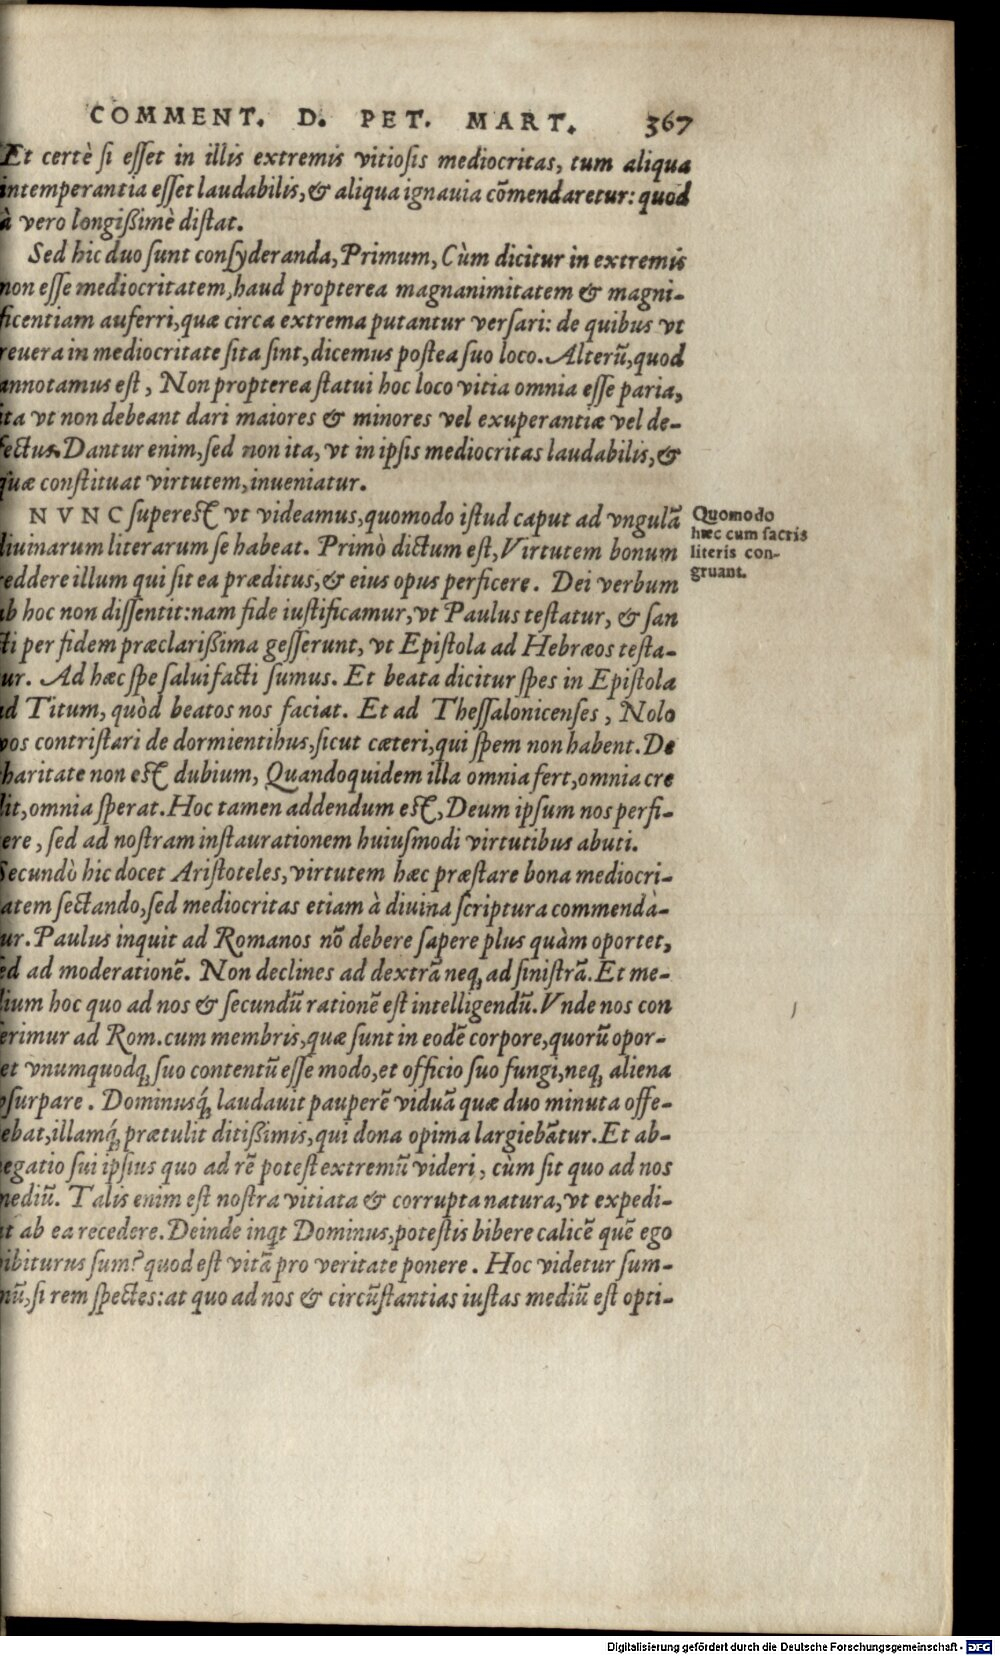 COMMENT. D. PET. MART. 367
Et certè si esset in illis extremis vitiosis mediocritas, tum aliqua
intemperantia esset laudabilis, & aliqua ignauia cõmendaretur: quod
à vero longißimè distat.
Sed hic duo sunt consyderanda, Primum, Cùm dicitur in extremis
non esse mediocritatem, haud propterea magnanimitatem & magni-
ficentiam auferri, quæ circa extrema putantur versari: de quibus vt
reuera in mediocritate sita sint, dicemus postea suo loco. Alterũ, quod
annotamus est, Non propterea statui hoc loco vitia omnia esse paria,
ita vt non debeant dari maiores & minores vel exuperantiæ vel de-
fectus. Dantur enim, sed non ita, vt in ipsis mediocritas laudabilis, &
quæ constituat virtutem, inueniatur.
NVNC superest vt videamus, quomodo istud caput ad vngulã
diuinarum literarum se habeat. Primò dictum est, Virtutem bonum
reddere illum qui sit ea præditus, & eius opus perficere. Dei verbum
ab hoc non dissentit: nam fide iustificamur, vt Paulus testatur, & san
cti per fidem præclarißima gesserunt, vt Epistola ad Hebræos testa-
ur. Ad hæc spe saluifacti sumus. Et beata dicitur spes in Epistola
ad Titum, quòd beatos nos faciat. Et ad Thessalonicenses, Nolo
vos contristari de dormientibus, sicut cæteri, qui spem non habent. De
haritate non est dubium, Quandoquidem illa omnia fert, omnia cre
dit, omnia sperat. Hoc tamen addendum est, Deum ipsum nos perfi-
ere, sed ad nostram instaurationem huiusmodi virtutibus abuti.
Secundò hic docet Aristoteles, virtutem hæc præstare bona mediocri-
atem sectando, sed mediocritas etiam à diuina scriptura commendà-
ur. Paulus inquit ad Romanos nõ debere sapere plus quàm oportet,
ed ad moderationẽ. Non declines ad dextrã neq; ad sinistrã. Et me-
dium hoc quo ad nos & secundũ rationẽ est intelligendũ. Vnde nos con
erimur ad Rom. cum membris, quæ sunt in eodẽ corpore, quorũ opor-
et vnumquodq; suo contentũ esse modo, et officio suo fungi, neq; aliena
vsurpare. Dominusq́; laudauit pauperẽ viduã quæ duo minuta offe-
ebat, illamq́; prætulit ditißimis, qui dona opima largiebãtur. Et ab-
egatio sui ipsius quo ad rẽ potest extremũ videri, cùm sit quo ad nos
mediũ. Talis enim est nostra vitiata & corrupta natura, vt expedi-
it ab ea recedere. Deinde inqt Dominus, potestis bibere calicẽ quẽ ego
bibiturus sum? quod est vitã pro veritate ponere. Hoc videtur sum-
mũ, si rem spectes: at quo ad nos & circũstantias iustas mediũ est opti-
Quomodo
hæc cum sacris
literis con-
gruant.
Digitalisierung gefördert durch die Deutsche Forschungsgemeinschaft - DFG